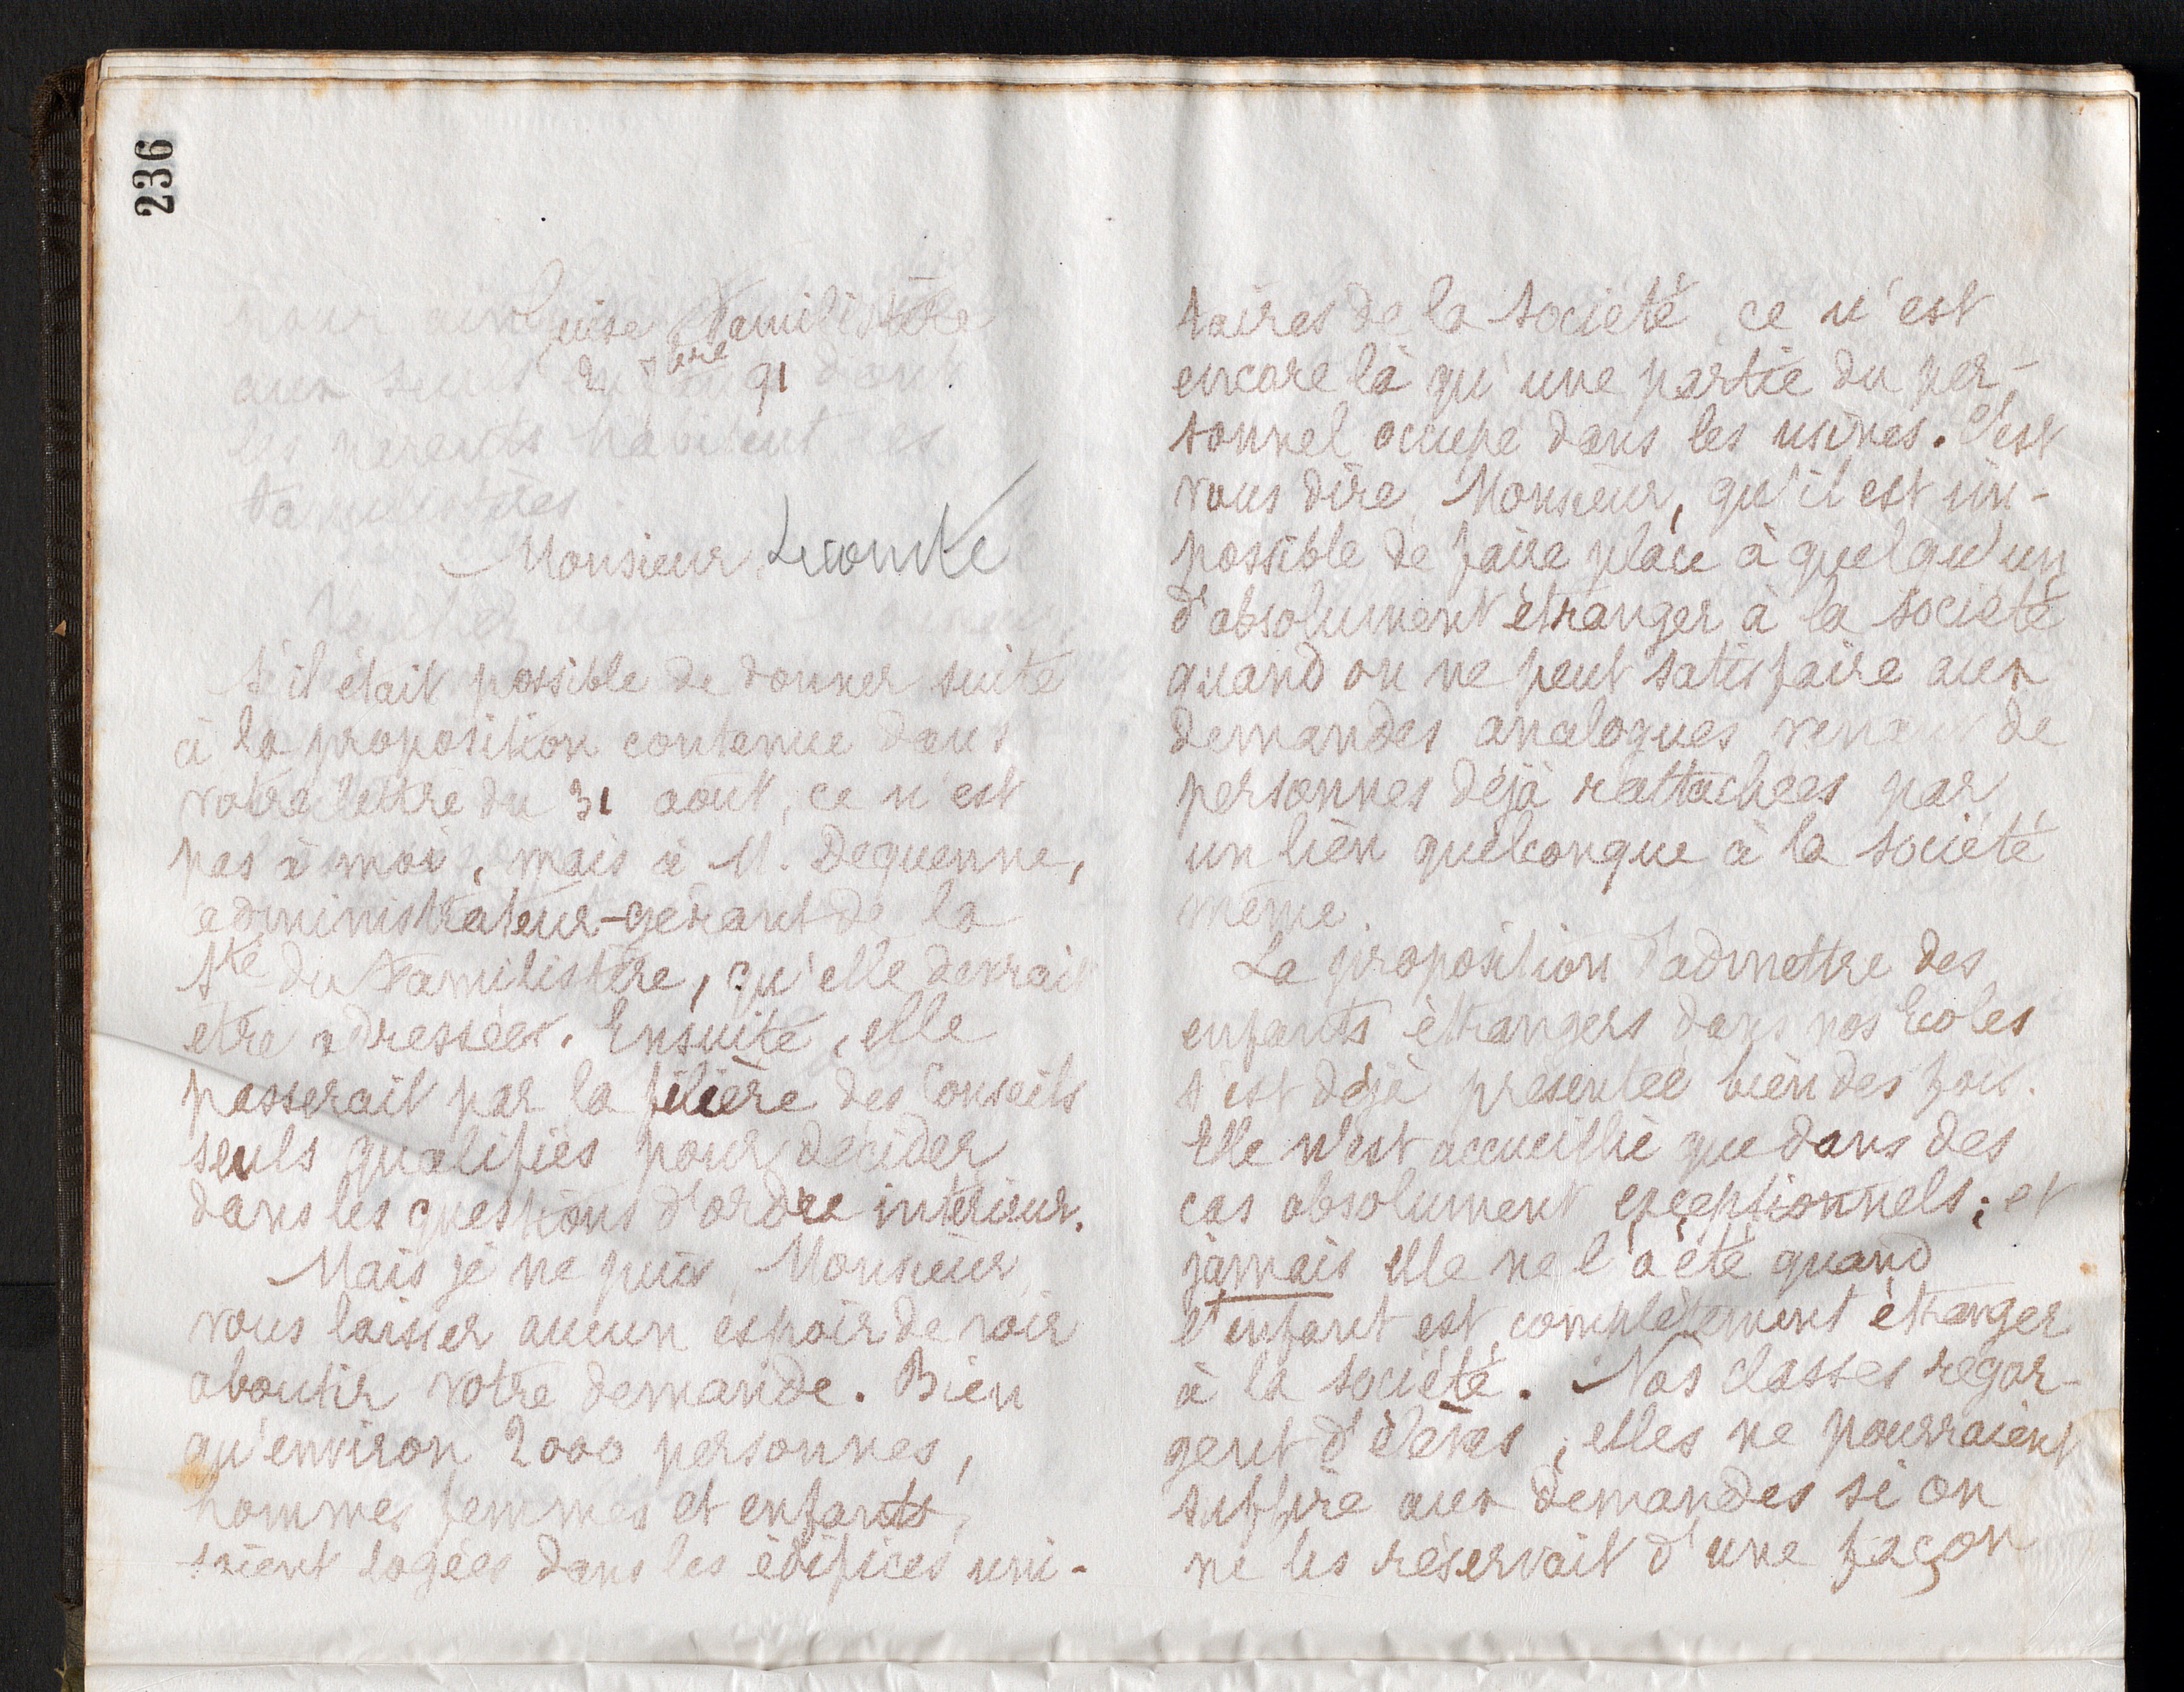 236
Guise Familistère
2 7bre 91
Monsieur Lecomte
S'il était possible de donner suite
à la proposition contenue dans
votre lettre du 31 août, ce n'est
pas à moi, mais à M. Dequenne,
administrateur-gérant de la
Sté du Familistère, qu'elle devrait
être adressée. Ensuite, elle
passerait par la filière des Conseils
seuls qualifiés pour décider
dans les questions d'ordre intérieur.
Mais je ne puis, Monsieur,
vous laisser aucun espoir de voir
aboutir votre demande. Bien
qu'environ 2000 personnes,
hommes femmes et enfants,
soient logées dans les édifices uni-
taires de la société, ce n'est
encore là qu'une partie du per-
sonnel occupé dans les usines. C'est
vous dire, Monsieur, qu'il est im-
possible de faire place à quelqu'un
d'absolument étranger à la société
quand on ne peut satisfaire aux
demandes analogues venant de
personnes déjà rattachées par
un lien quelconque à la société
même.
La proposition d'admettre des
enfants étrangers dans nos Ecoles
s'est déjà présentée bien des fois.
Elle n'est accueillie que dans des
cas absolument exceptionnels; et
jamais elle ne l'a été quand
l'enfant est complètement étranger
à la société. Nos classes regor-
gent d'élèves; elles ne pourraient
suffire aux demandes si on
ne les réservait d'une façon
pour ainsi
aux seuls enfants dont
les parents habitent les
familistères.